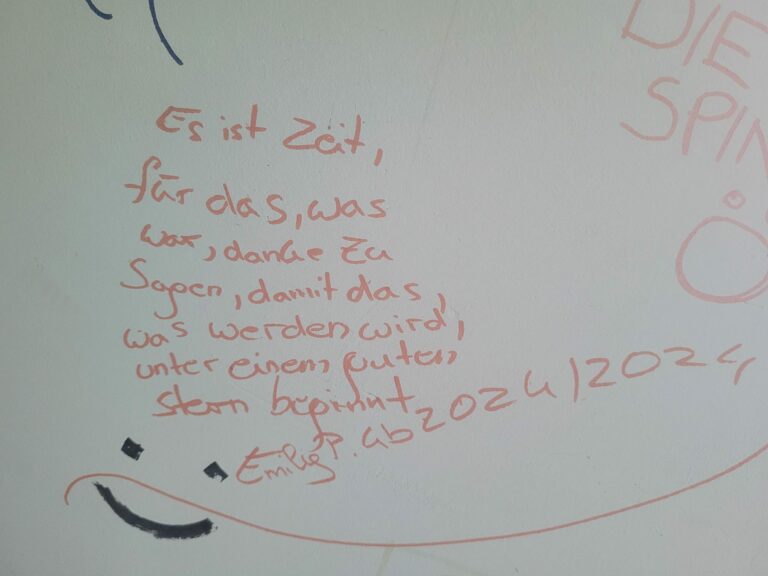 Es ist Zeit,
für das, was
war, danke zu
sagen, damit das,
was werden wird,
unter einem guten
stern beginnt.
Emily P. ab 2024/2024
DIE
SPIN